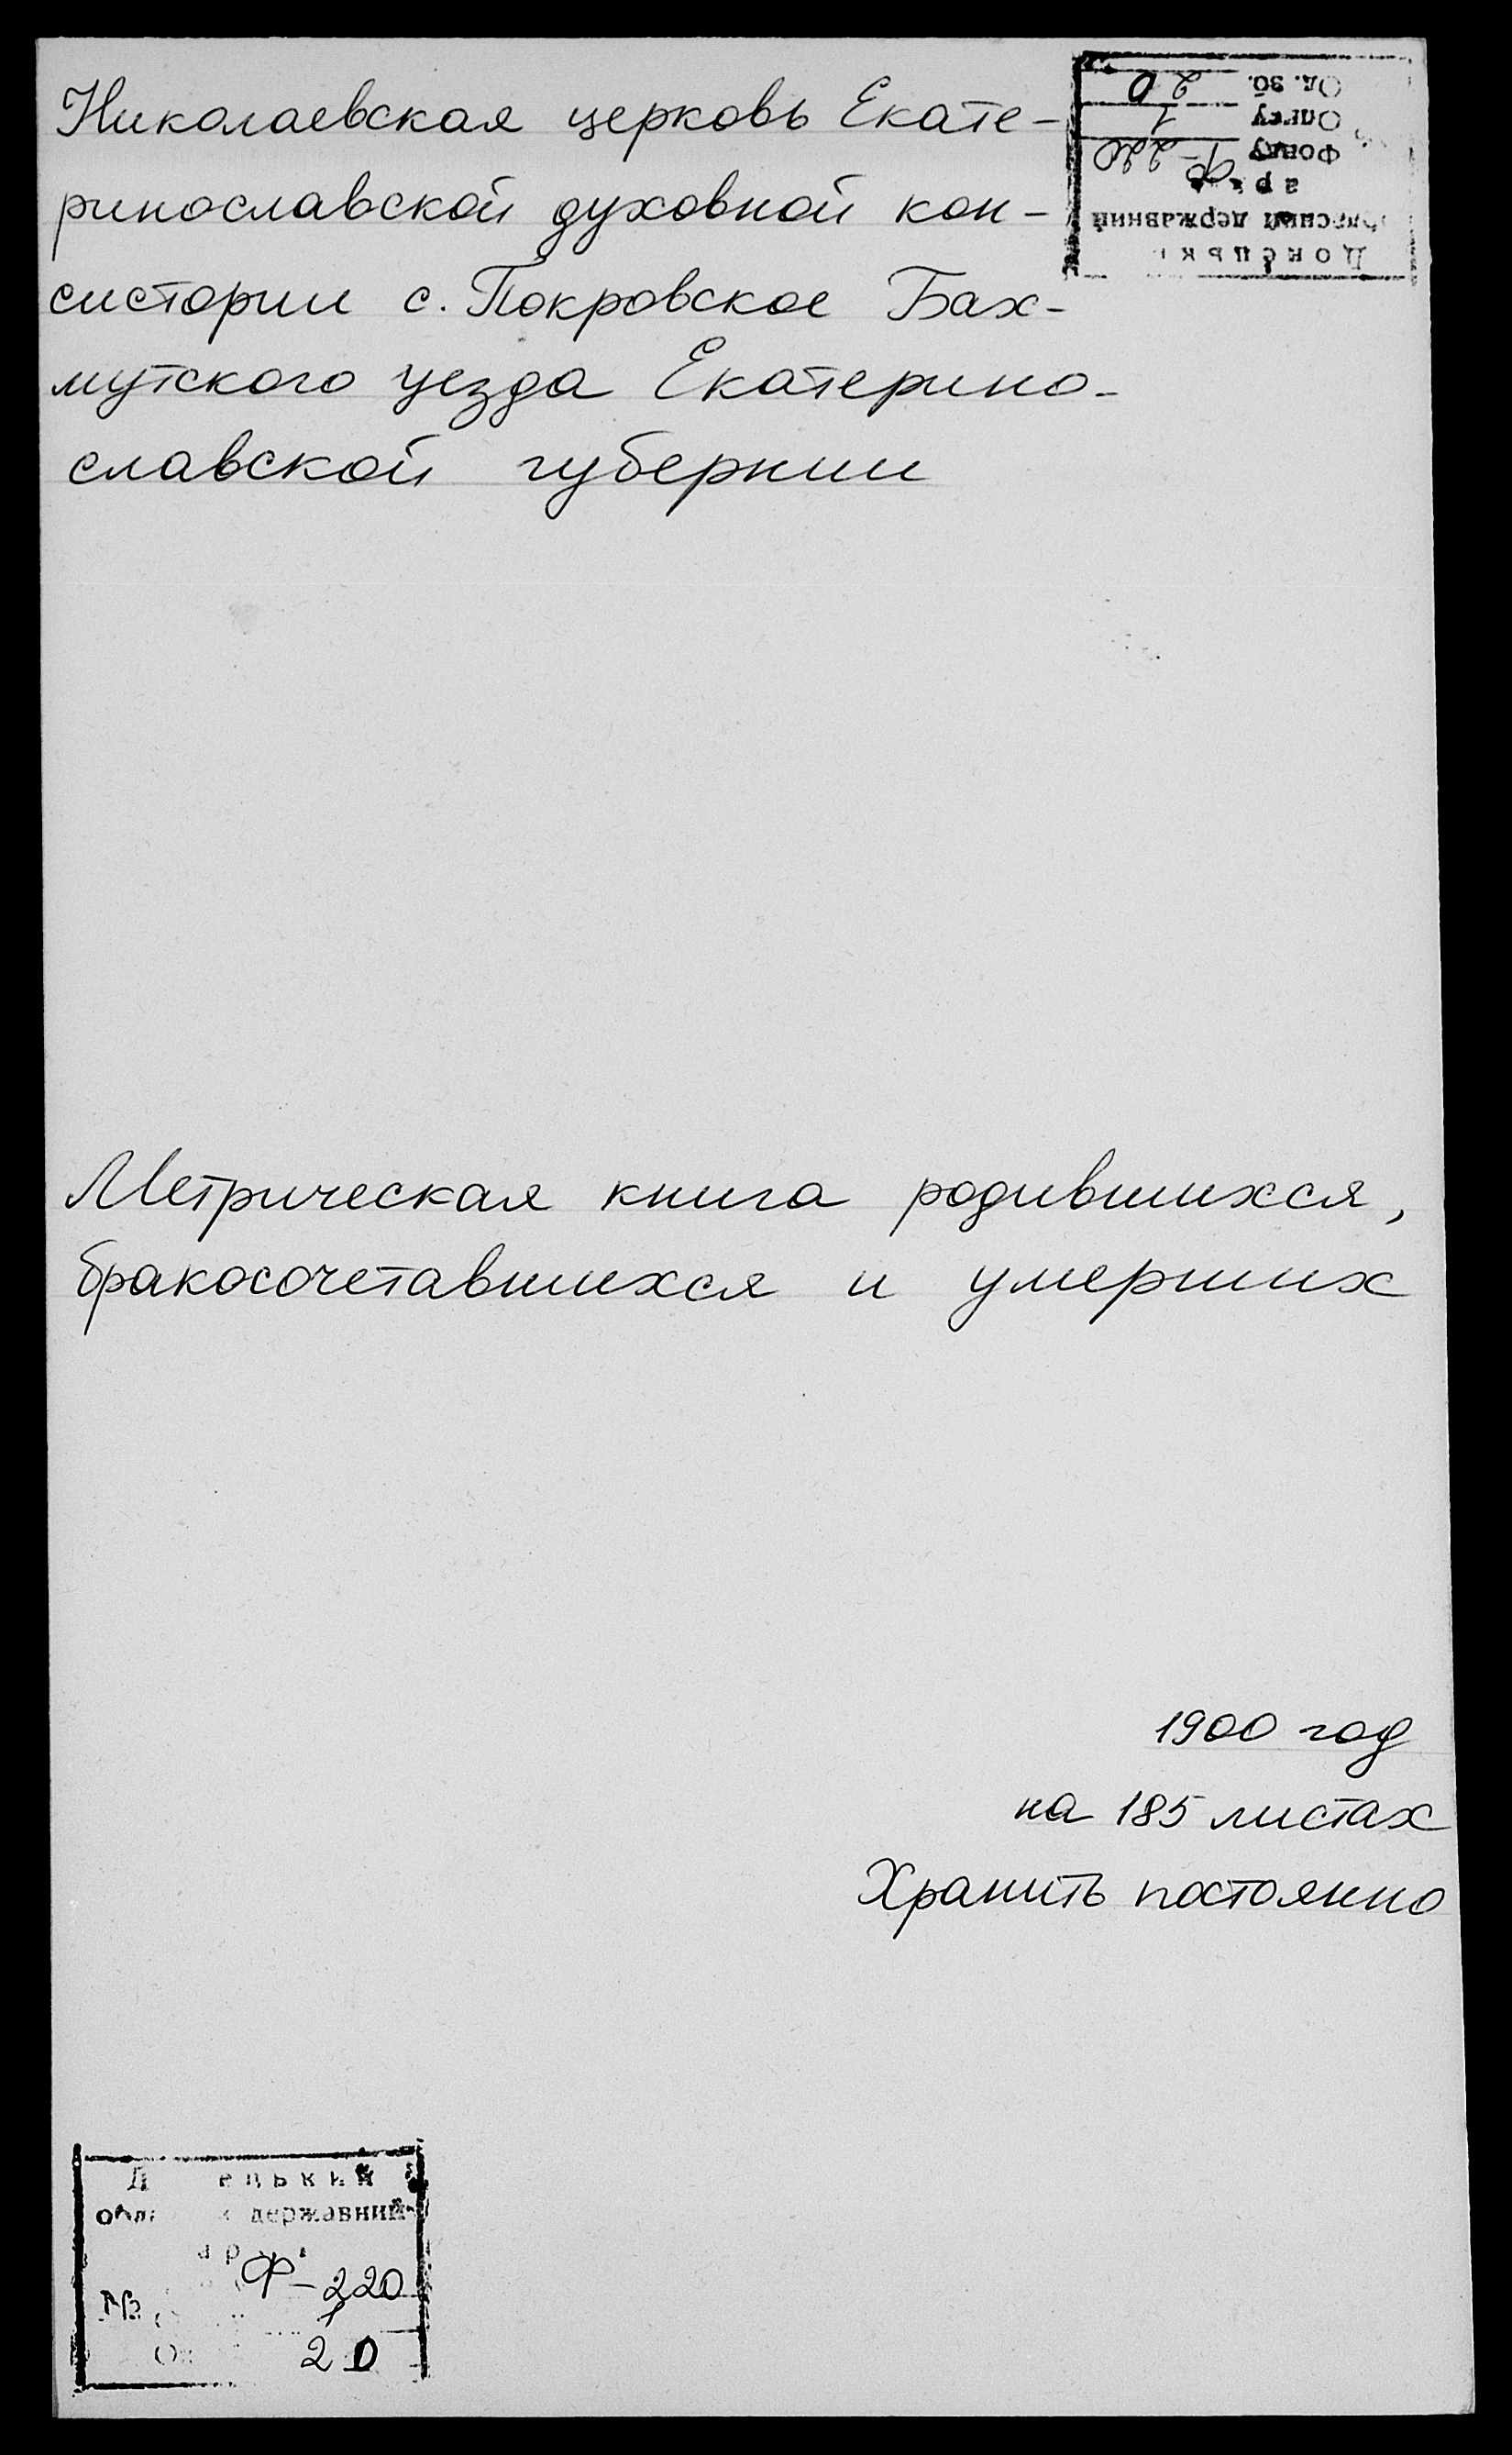 Николаевская церковь Екате-
ринославской духовной кон-
систории с. Покровское Бах-
мутского уезда Екатерино-
славской губернии
державний
Фонду Ф-220
Опису 1
Од. зб. 20
Метрическая книга родившихся,
бракосочетавшихся и умерших
1900 год
на 185 листах
Хранить постоянно
державний
Ф-220
№ 1
20